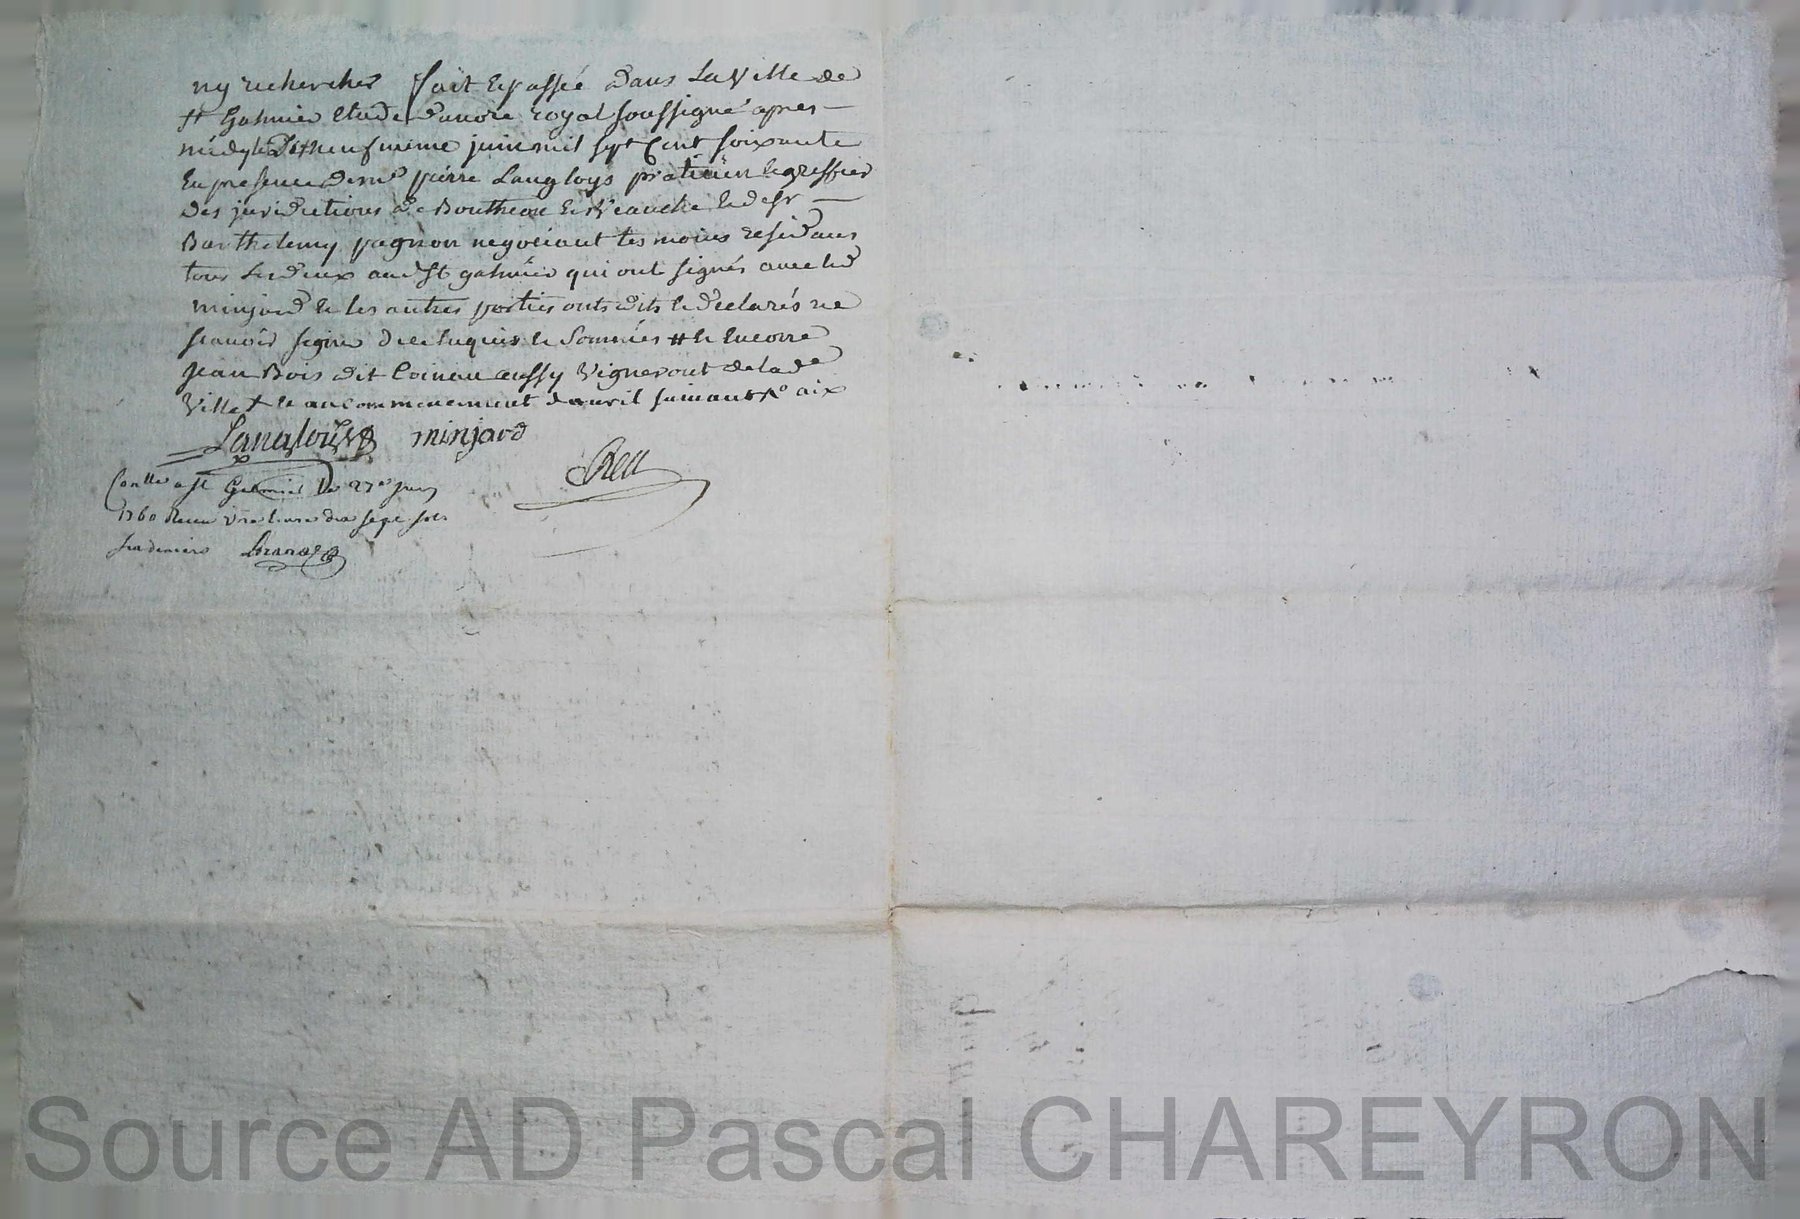 ny recherches fait et passé dans La Ville de
st Galmier etude du nore royal soussigné apres
midy le Dixneufvieme juin mil sept Cent soixante
En presence de me pierre Langloys praticien et greffier
des juridictions de Bouthéon et Veauche et de sr
Barthelemy pagnon negociant tesmoins residans
tous Les deux aud st galmier qui ont signés avec led
minjard et les autres parties onts dits et declarés ne
scavoir signer de ce enquis et sommés # et Encorre
Jean Bois dit aussy Vigneront de lad
Ville et au commencement davril suivant
Langloys minjard
Rea
Conlle a st Galmier le 27e juin
1760 Receu une livre dix sept sols
six deniers
Source AD Pascal CHAREYRON